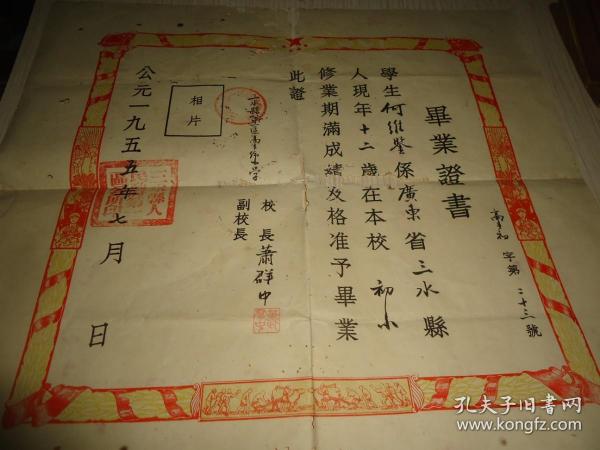 畢業證書
字第二十三號
學生何維鑒係廣東省三水縣
人現年十二歲在本校初小
修業期滿成績及格准予畢業
此證
校長蕭群中
副校長
相片
公元一九五五年七月 日
孔夫子旧书网
www.kongfz.com